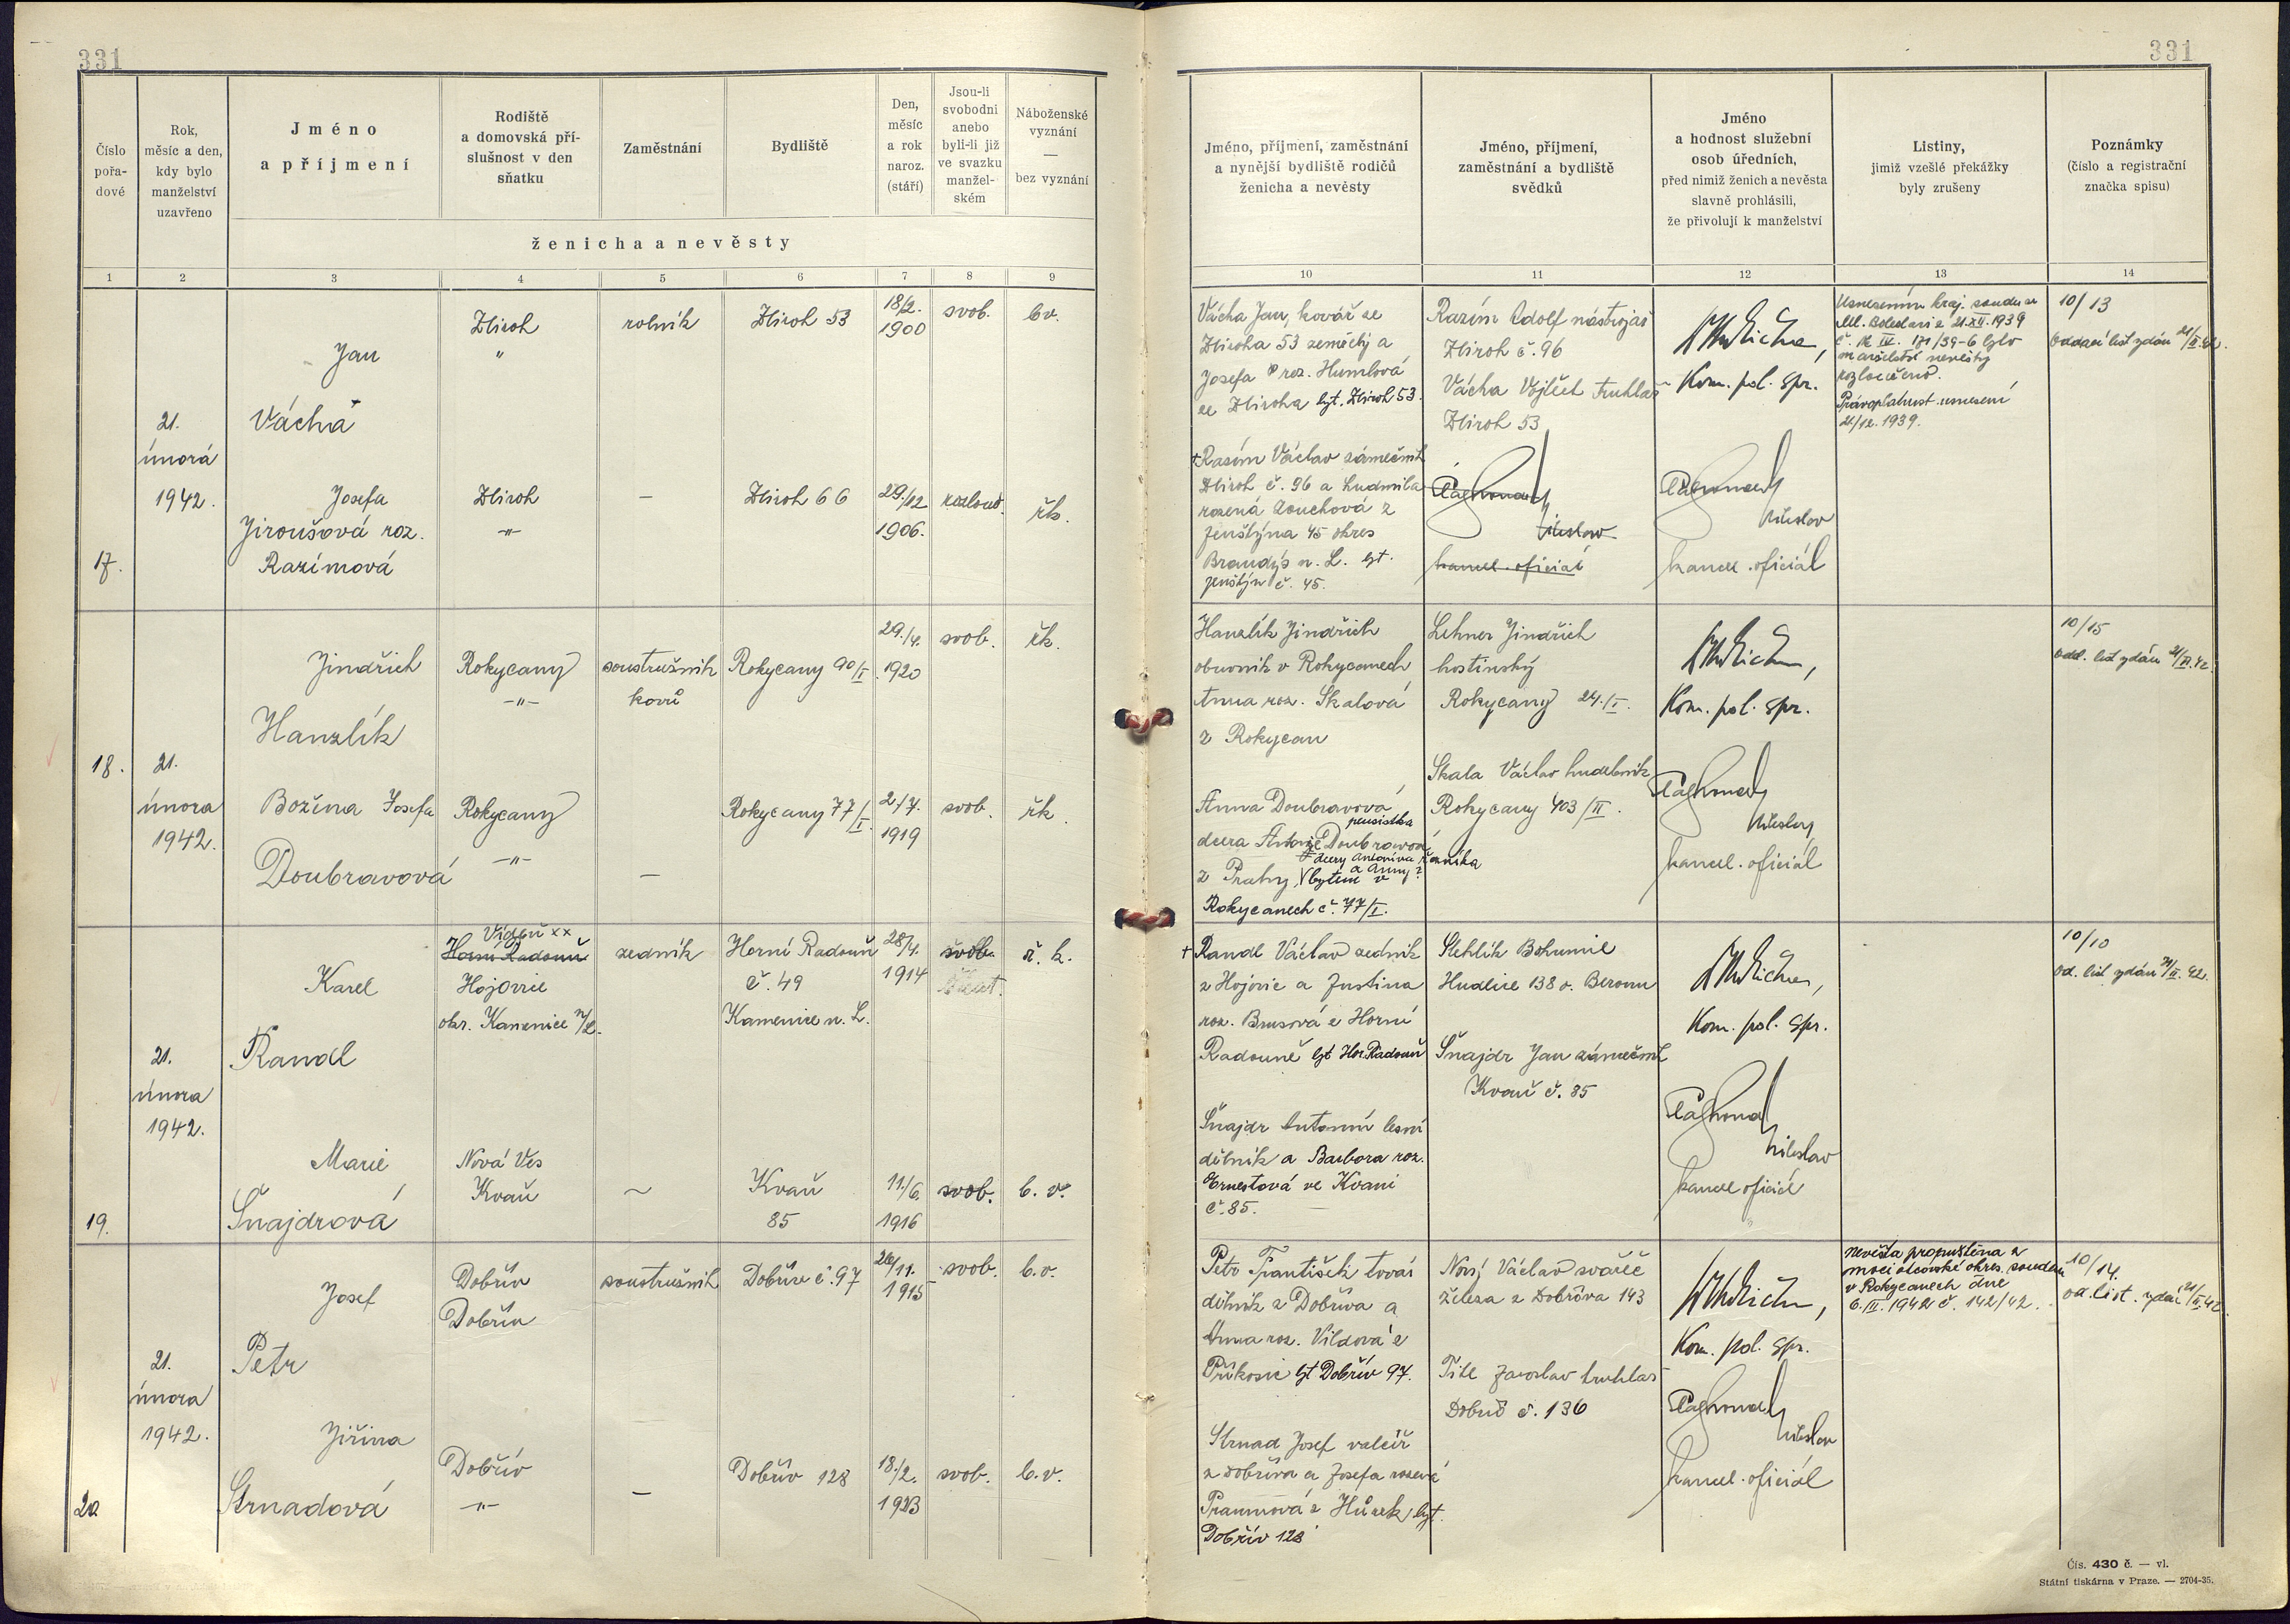 331
331
Číslo
pořa-
dové
Rok,
měsíc a den,
kdy bylo
manželství
uzavřeno
Jméno
a příjmení
Rodiště
a domovská pří-
slušnost v den
sňatku
Zaměstnání
Bydliště
Den,
měsíc
a rok
naroz.
(stáří)
Jsou-li
svobodni
anebo
byli-li již
ve svazku
manžel-
ském
Náboženské
vyznání
—
bez vyznání
ženicha a nevěsty
Jméno, příjmení, zaměstnání
a nynější bydliště rodičů
ženicha a nevěsty
Jméno, příjmení,
zaměstnání a bydliště
svědků
Jméno
a hodnost služební
osob úředních,
před nimiž ženich a nevěsta
slavně prohlásili,
že přivolují k manželství
Listiny,
jimiž vzešlé překážky
byly zrušeny
Poznámky
(číslo a registrační
značka spisu)
1 2 3 4 5 6 7 8 9
10 11 12 13 14
17.
21.
února
1942.
Jan
Vácha
Zbiroh
"
rolník
Zbiroh 53
18/2.
1900
svob.
bv.
Josefa
Jiroušová roz.
Razímová
Zbiroh
-"-
—
Zbiroh 66
29./12
1906.
rozlouč.
řk.
Vácha Jan, kovář ze
Zbiroha 53 zemřelý a
Josefa roz. Humlová
ze Zbiroha byt. Zbiroh 53.
+Razím Václav zámečník
Zbiroh č. 96 a Ludmila
rozená Zouchová z
Jenštýna 45 okres
Brandýs n. L. byt.
Jenštýn č. 45.
Razím Adolf nástrojař
Zbiroh č. 96
Vácha Vojtěch truhlář
Zbiroh 53
kancel. oficiál
Kom. pol. spr.
kancel. oficiál
Usnesením kraj. soudu v
Ml. Boleslavi z 21.XII.1939
č. Ck IV. 171/39-6 bylo
manželství nevěsty
rozloučeno.
Právoplatnost usnesení
21/12. 1939.
10/13
Oddací list vydán 21/II.42.
18.
21.
února
1942.
Jindřich
Hanzlík
Rokycany
-"-
soustružník
kovů
Rokycany 90/I.
29./4.
1920
svob.
řk.
Božena Josefa
Doubravová
Rokycany
-"-
—
Rokycany 77/I.
2./7.
1919
svob.
řk.
Hanzlík Jindřich
obuvník v Rokycanech
Anna roz. Skalová
z Rokycan
Anna Doubravová,
pensistka
dcera Antonie Doubravové
dcery Antonína řezníka
a Anny z
z Prahy, bytem v
Rokycanech č. 77/I.
Lehner Jindřich
hostinský
Rokycany 24./I.
Skala Václav hudebník
Rokycany 403/II.
Kom. pol. spr.
kancel. oficiál
10/15
odd. list vydán 21/II.42
19.
21.
února
1942.
Karel
Randl
Vídeň xx
Horní Radouň
Hojovice
okr. Kamenice n/L.
zedník
Horní Radouň
č. 49
Kamenice n. L.
28/4.
1914
svob.
ř. k.
Marie
Šnajdrová
Nová Ves
Kvaň
~
Kvaň
85
11./6.
1916
svob.
b. v.
+ Randl Václav zedník
z Hojovic a Justina
roz. Brusová z Horní
Radouně byt Hor. Radouň
Šnajdr Antonín lesní
dělník a Barbora roz.
Ernestová ve Kvani
č. 85.
Stehlík Bohumil
Hudlice 138 o. Beroun
Šnajdr Jan zámečník
Kvaň č. 85
Kom. pol. spr.
kancel oficiál
10/10
Od. list vydán 21/II. 42.
20.
21.
února
1942.
Josef
Petr
Dobřív
Dobřív
soustružník
Dobřív č. 97
26/11.
1915
svob.
b.v.
Jiřina
Strnadová
Dobřív
-"-
—
Dobřív 128
18./2.
1923
svob.
b.v.
Petr František továr
dělník z Dobříva a
Anna roz. Vildová z
Příkosic byt Dobřív 97.
Strnad Josef valcíř
z Dobříva a Josefa rozená
Praumová z Hůrek, byt.
Dobřív 128
Nový Václav svářeč
železa z Dobříva 143
Titl Jaroslav truhlář
Dobřív č. 136
Kom. pol. spr.
kancel. oficiál
Nevěsta propuštěna z
moci otcovské okres. soudem
v Rokycanech dne
6.II. 1942 č. 142/42.
10/14.
od. list. vydán 21/II.42.
Čís. 430 č. — vl.
Státní tiskárna v Praze. — 2704-35.